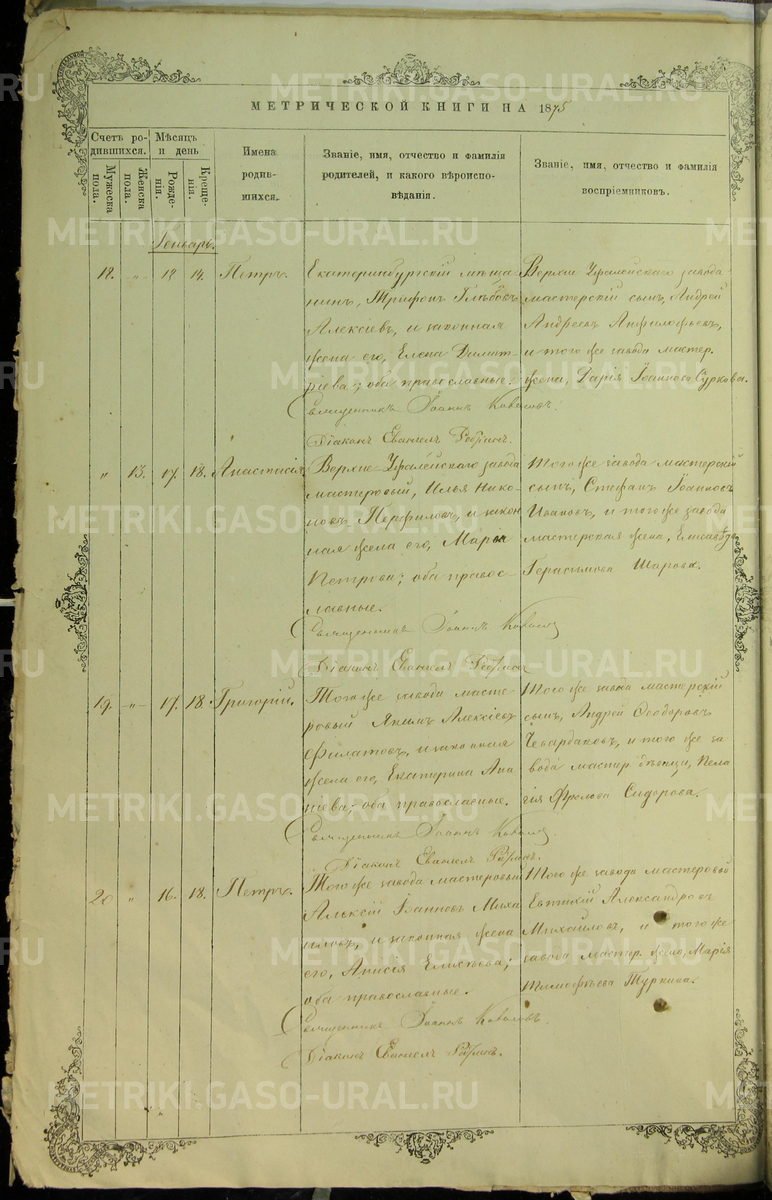 МЕТРИЧЕСКОЙ КНИГИ НА 1875
Счетъ ро-
дившихся.
Мужеска
пола.
Женска
пола.
Мѣсяцъ
и день
Рожде-
нія.
Креще-
нія.
Имена
родив-
шихся.
Званіе, имя, отчество и фамилія
родителей, и какого вѣроиспо-
вѣданія.
Званіе, имя, отчество и фамилія
воспріемниковъ.
Генварь.
18. " 12 14. Петръ.
Екатеринбургскій мѣща-
нинъ, Трифонъ Глѣбовъ
Алексіевъ, и законная
жена его, Елена Димит-
ріева; оба православные.
Священникъ Іоаннъ
Діаконъ
Верхне Уфалейскаго завода
мастерскій сынъ, Андрей
Андреевъ Анфилофьевъ,
и того же завода мастер.
жена, Дарія Іоаннова Суркова.
" 13. 17. 18. Анастасія
Верхне-Уфалейскаго завода
мастеровый, Илья Нико-
новъ Перфиловъ, и закон
ная жена его, Марѳа
Петрова; оба правос-
лавные.
Священникъ Іоаннъ
Діаконъ
Того же завода мастерскій
сынъ, Стефанъ Іоанновъ
Ивановъ, и того же завода
мастерская жена,
Герасимова
19. " 17. 18. Григорій.
Того же завода масте-
ровый Якимъ Алексіевъ
Филатовъ, и законная
жена его, Екатерина Ана
ніева; оба православные.
Священникъ Іоаннъ
Діаконъ
Того же завода мастерскій
сынъ, Андрей Ѳеодоровъ
Чевардаковъ, и того же за
вода мастер. дѣвица, Пела
гія Фролова Сидорова.
20 " 16. 18. Петръ.
Того же завода мастеровый
Алексій Іоанновъ Миха
иловъ, и законная жена
его, Анисія Елисѣева;
оба православные.
Священникъ Іоаннъ
Діаконъ
Того же завода мастеровый
Евтихій Александровъ
Михайловъ, и того же
завода мастер. жена, Марія
Тимофѣева Туркина.
METRIKI.GASO-URAL.RU